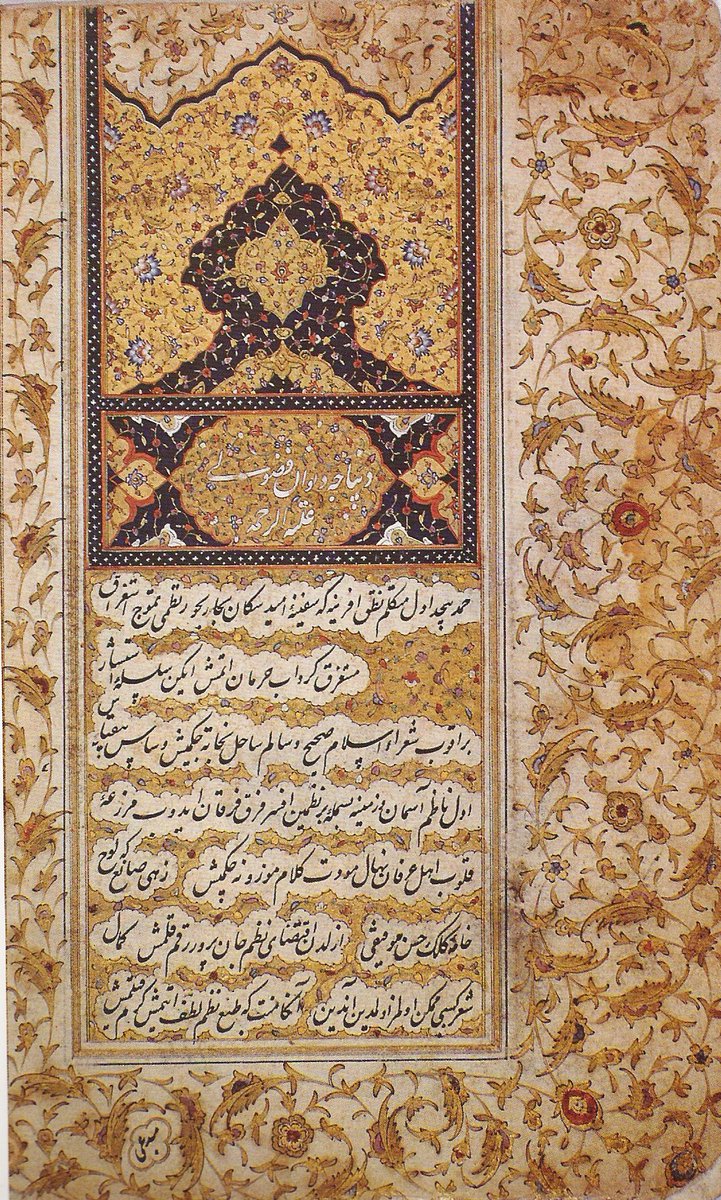 دیباجه دیوان فضولی
علیه الرحمه
حمد بیحد اول متکلم نطق افرینه که سفینهٔ امید سکان بحار بحور نظمی تموج استغراق
مستغرق گرداب حرمان اتمش ایکن سلسله
براقوب شعراء اسلام صحیح و سالم ساحل نجاته چکمیش و سپاس بیقیاس
اول ناظم آسمان و زمینه بسمله بر نظمین افسر فرق فرقان ایدوب مزرعهٔ
قلوب اهل عرفان نهال مودت کلام موزونه چکمیش زهی صانع که لوح
کلک حسن ازلدن اقتضای نظم جان پرور رقم قلمش کمال
شعر کسبی ممکن اولمز اولمدین آندین آکا منت که طبع نظم لطف اتمیش کرم قلمیش